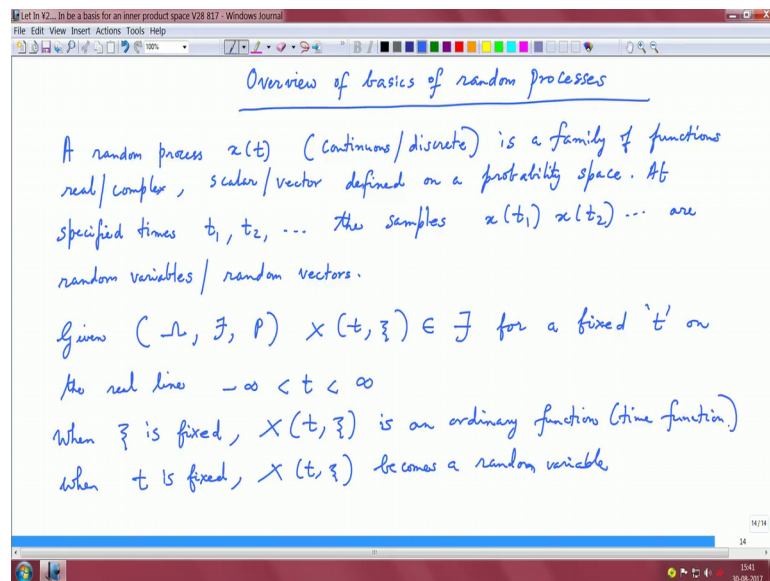 Let In ¥2.... In be a basis for an inner product space V28 817 - Windows Journal
File Edit View Insert Actions Tools Help
100%
B I
Overview of basics of random processes
A random process x(t) (continuous/discrete) is a family of functions
real/complex, scalar/vector defined on a probability space. At
specified times t₁, t₂, ... the samples x(t₁) x(t₂) ... are
random variables/random vectors.
Given (Ω, F, P) X(t, ξ) ∈ F for a fixed 't' on
the real line -∞ < t < ∞
When ξ is fixed, X(t, ξ) is an ordinary function (time function.)
when t is fixed, X(t, ξ) becomes a random variable
14/14
14
15:41
30-08-2017